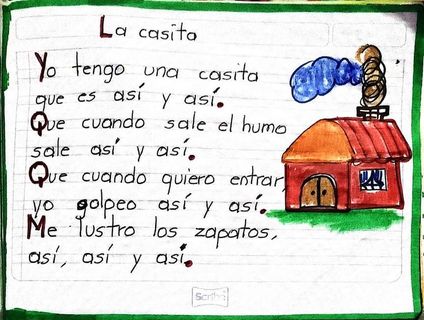 La casita
Yo tengo una casita
que es así y así.
Que cuando sale el humo
sale así y así.
Que cuando quiero entrar,
yo golpeo así y así.
Me lustro los zapatos,
así, así y así.
Scribe